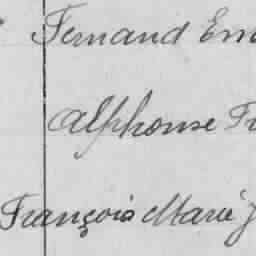 Fernand
Alphonse
François Marie